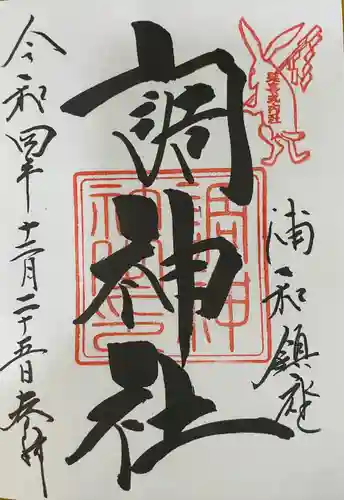 浦和鎮座
調神社
令和四年十二月二十五日奉拝
調神社